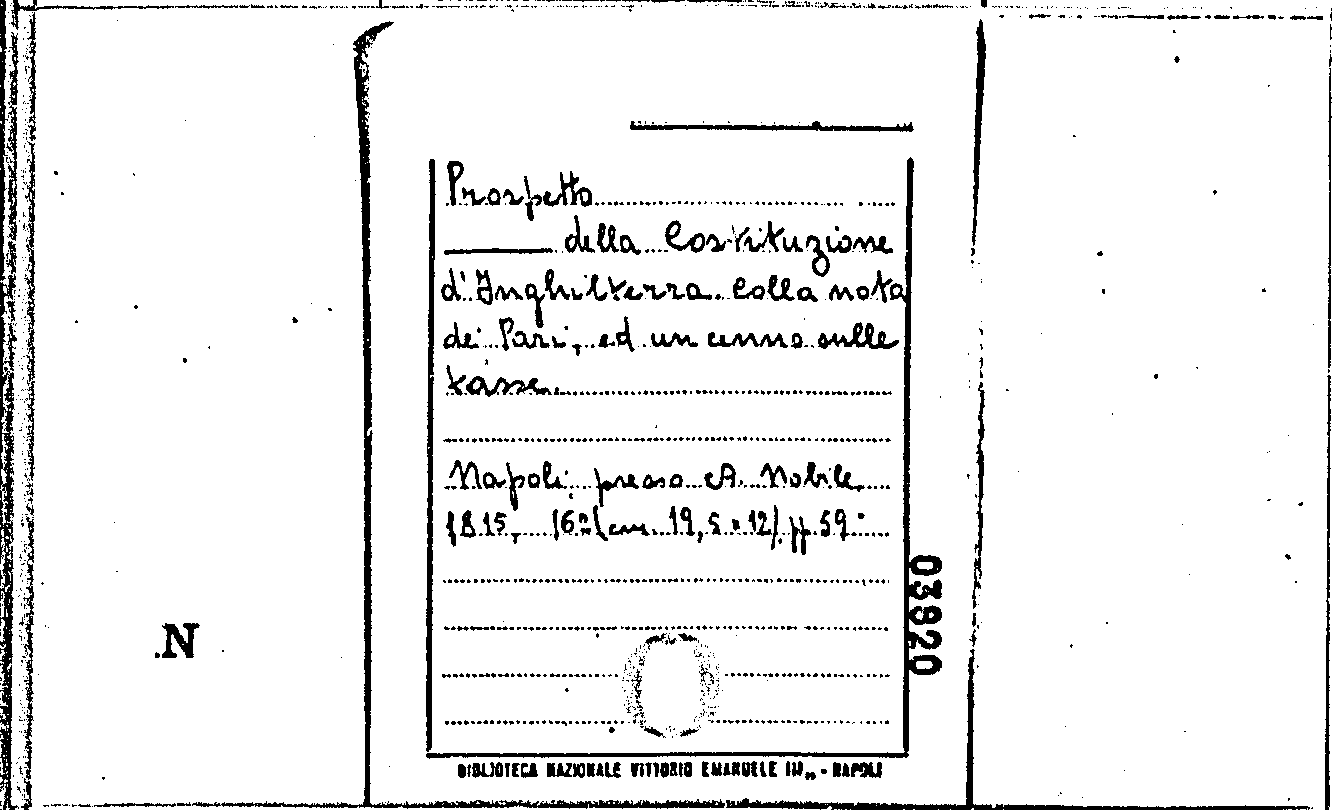 Prospetto
della Costituzione
d'Inghilterra colla nota
dei Pari, ed un cenno sulle
tasse.
Napoli, presso A. Nobile
1815, 16º (cm. 19,5 x 12) pp 59
03820
N
BIBLIOTECA NAZIONALE VITTORIO EMANUELE III,, - NAPOLI